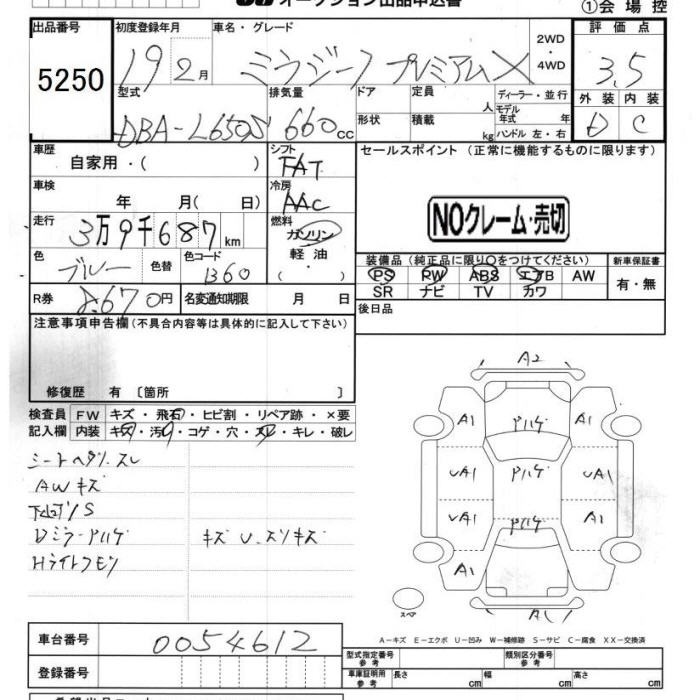 オークション出品申込書
①会場控
出品番号 初度登録年月 車名・グレード 2WD・4WD 評価点
5250 19年 2月 ミラジーノ プレミアムX 3.5
型式 排気量 ドア 定員 人 ディーラー・並行 外装 内装
DBA-L650S 660cc 形状 積載 kg モデル年式 年 ハンドル 左・右 D C
車歴 自家用・( ) シフト FAT セールスポイント (正常に機能するものに限ります)
車検 年 月( 日) 冷房 AAC
NOクレーム・売切
走行 3万9千687km 燃料 ガソリン
色 ブルー 色替 色コード B60 軽油 ・
装備品(純正品に限り〇をつけてください) 新車保証書
PS PW ABS エアB AW 有・無
SR ナビ TV カワ
R券 8,670円 名変通知期限 月 日 後日品
注意事項申告欄(不具合内容等は具体的に記入して下さい)
修復歴 有 〔箇所 〕
検査員 FW キズ・飛石・ヒビ割・リペア跡・×要
記入欄 内装 キズ・汚れ・コゲ・穴・スレ・キレ・破レ
シートヘタリ.スレ
AWキズ
下回りS
Dミラーアハゲ キズU.スリキズ
Hライトクモリ
A2
A1 アハゲ A1
UA1 アハゲ UA1
UA1 アハゲ A1
A1
A1
スペア
A-キズ E-エクボ U-凹み W-補修跡 S-サビ C-腐食 XX-交換済
車台番号 0054612
型式指定番号 参考 類別区分番号 参考
登録番号
車庫証明用 参考 長さ cm 幅 cm 高さ cm